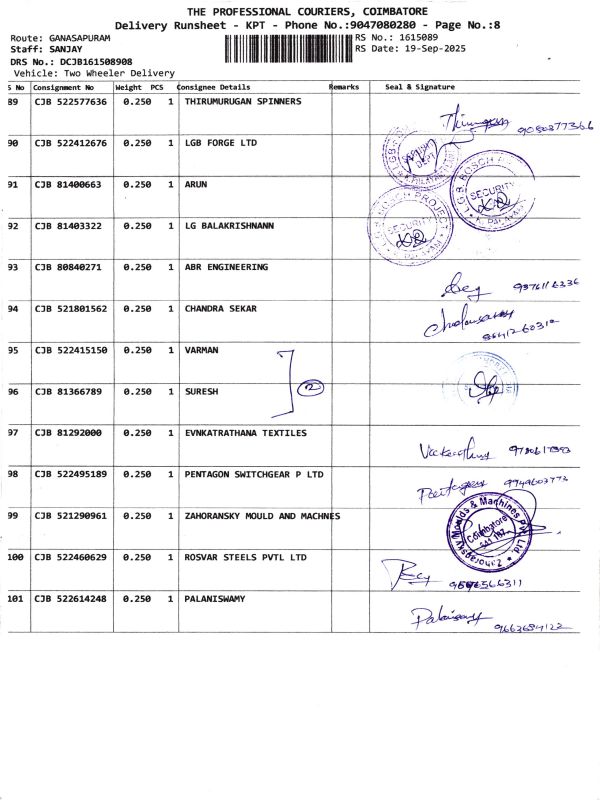 THE PROFESSIONAL COURIERS, COIMBATORE
Delivery Runsheet - KPT - Phone No.:9047080280 - Page No.:8
Route: GANASAPURAM RS No.: 1615089
Staff: SANJAY RS Date: 19-Sep-2025
DRS No.: DCJB161508908
Vehicle: Two Wheeler Delivery
S No Consignment No Weight PCS Consignee Details Remarks Seal & Signature
89 CJB 522577636 0.250 1 THIRUMURUGAN SPINNERS
90 CJB 522412676 0.250 1 LGB FORGE LTD
91 CJB 81400663 0.250 1 ARUN
L.G.B. BOSCH PROJECT
SECURITY
92 CJB 81403322 0.250 1 LG BALAKRISHNANN
BOSCH PROJECT
SECURITY
93 CJB 80840271 0.250 1 ABR ENGINEERING
94 CJB 521801562 0.250 1 CHANDRA SEKAR
95 CJB 522415150 0.250 1 VARMAN
2
96 CJB 81366789 0.250 1 SURESH
97 CJB 81292000 0.250 1 EVNKATRATHANA TEXTILES
98 CJB 522495189 0.250 1 PENTAGON SWITCHGEAR P LTD
9949603773
99 CJB 521290961 0.250 1 ZAHORANSKY MOULD AND MACHNES
Moulds & Machines Pvt. Ltd
Coimbatore
100 CJB 522460629 0.250 1 ROSVAR STEELS PVTL LTD
101 CJB 522614248 0.250 1 PALANISWAMY
9663684122